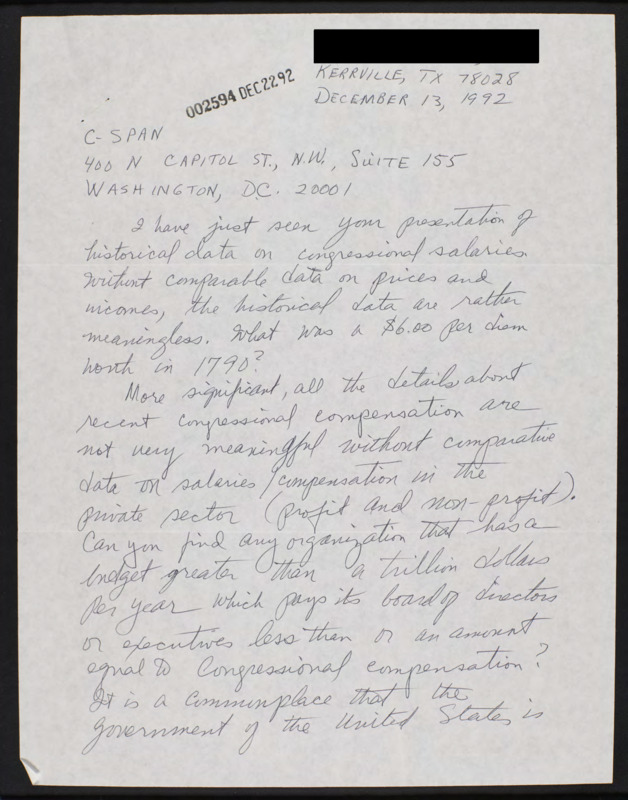 KERRVILLE, TX 78028
DECEMBER 13, 1992
002594 DEC2292
C-SPAN
400 N CAPITOL ST., N.W., SUITE 155
WASHINGTON, D.C. 20001
I have just seen your presentation of
historical data on congressional salaries.
Without comparable data on prices and
incomes, the historical data are rather
meaningless. What was a $6.00 per diem
worth in 1790?
More significant, all the details about
recent congressional compensation are
not very meaningful without comparative
data on salaries/compensation in the
private sector (profit and non-profit).
Can you find any organization that has a
budget greater than a trillion dollars
per year which pays its board of directors
or executives less than or an amount
equal to Congressional compensation?
It is a commonplace that the
government of the United States is